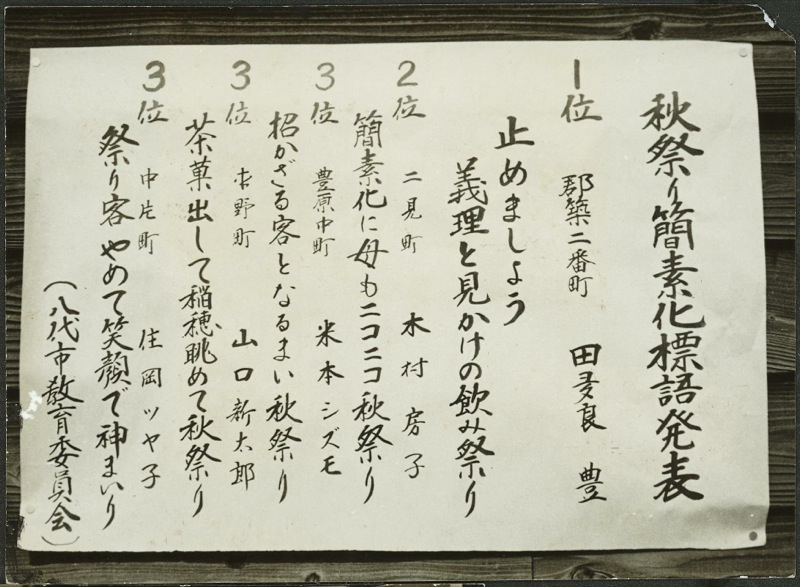 秋祭り簡素化標語発表
1位 郡築二番町 田多良 豊
止めましょう
義理と見かけの飲み祭り
2位 二見町 木村房子
簡素化に母もニコニコ秋祭り
3位 豊原中町 米本シズモ
招かざる客となるまい秋祭り
3位 吉野町 山口新太郎
茶菓出して稲穂眺めて秋祭り
3位 中片町 住岡ツヤ子
祭り客やめて笑顔で神まいり
(八代市教育委員会)